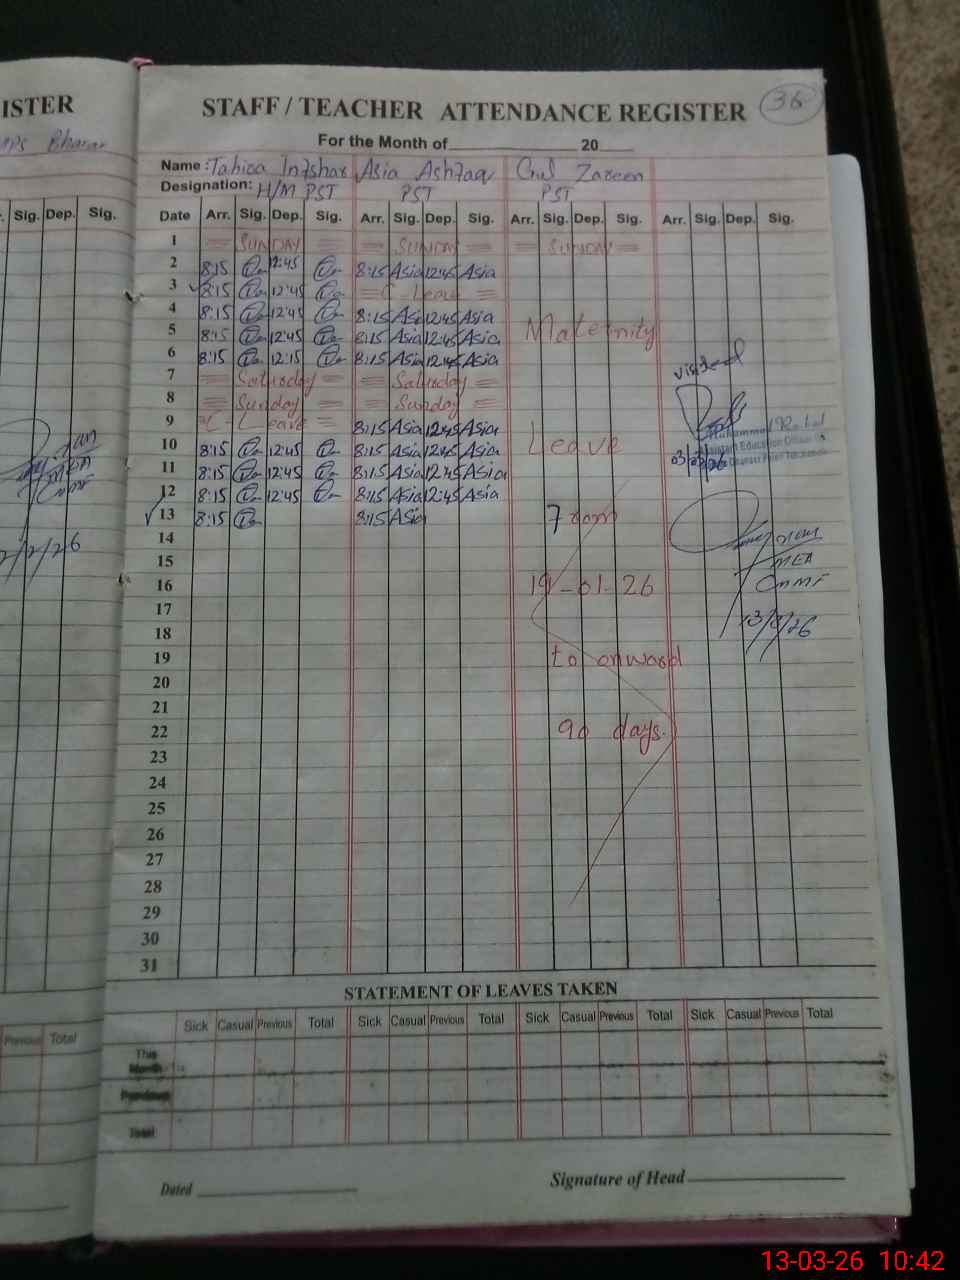 ISTER
STAFF / TEACHER ATTENDANCE REGISTER 36
For the Month of 20
Name : Tahira Intshar Asia Ashfaq Gul Zareen
Designation: H/M PST PST PST
Sig. Dep. Sig.
Date Arr. Sig. Dep. Sig. Arr. Sig. Dep. Sig. Arr. Sig. Dep. Sig. Arr. Sig. Dep. Sig.
1 SUNDAY SUNDAY SUNDAY
2 8:15 12:45 8:15 Asia 12:45 Asia
3 8:15 12:45 C-Leave
4 8:15 12:45 8:15 Asia 12:45 Asia
5 8:15 12:45 8:15 Asia 12:45 Asia Maternity
6 8:15 12:15 8:15 Asia 12:45 Asia
visited
7 Saturday Saturday
8 Sunday Sunday
9 C-Leave 8:15 Asia 12:45 Asia
10 8:15 12:45 8:15 Asia 12:45 Asia Leave
Assistant Education Officer
03/03/26
11 8:15 12:45 8:15 Asia 12:45 Asia
12 8:15 12:45 8:15 Asia 12:45 Asia
13 8:15 8:15 Asia From
14
15
MEA
16 19-01-26
17
18
13/3/26
19 to onward
20
21
22 90 days.
23
24
25
26
27
28
29
30
31
STATEMENT OF LEAVES TAKEN
Previous Total
Sick Casual Previous Total Sick Casual Previous Total Sick Casual Previous Total Sick Casual Previous Total
This
Month
Previous
Total
Dated
Signature of Head
13-03-26 10:42